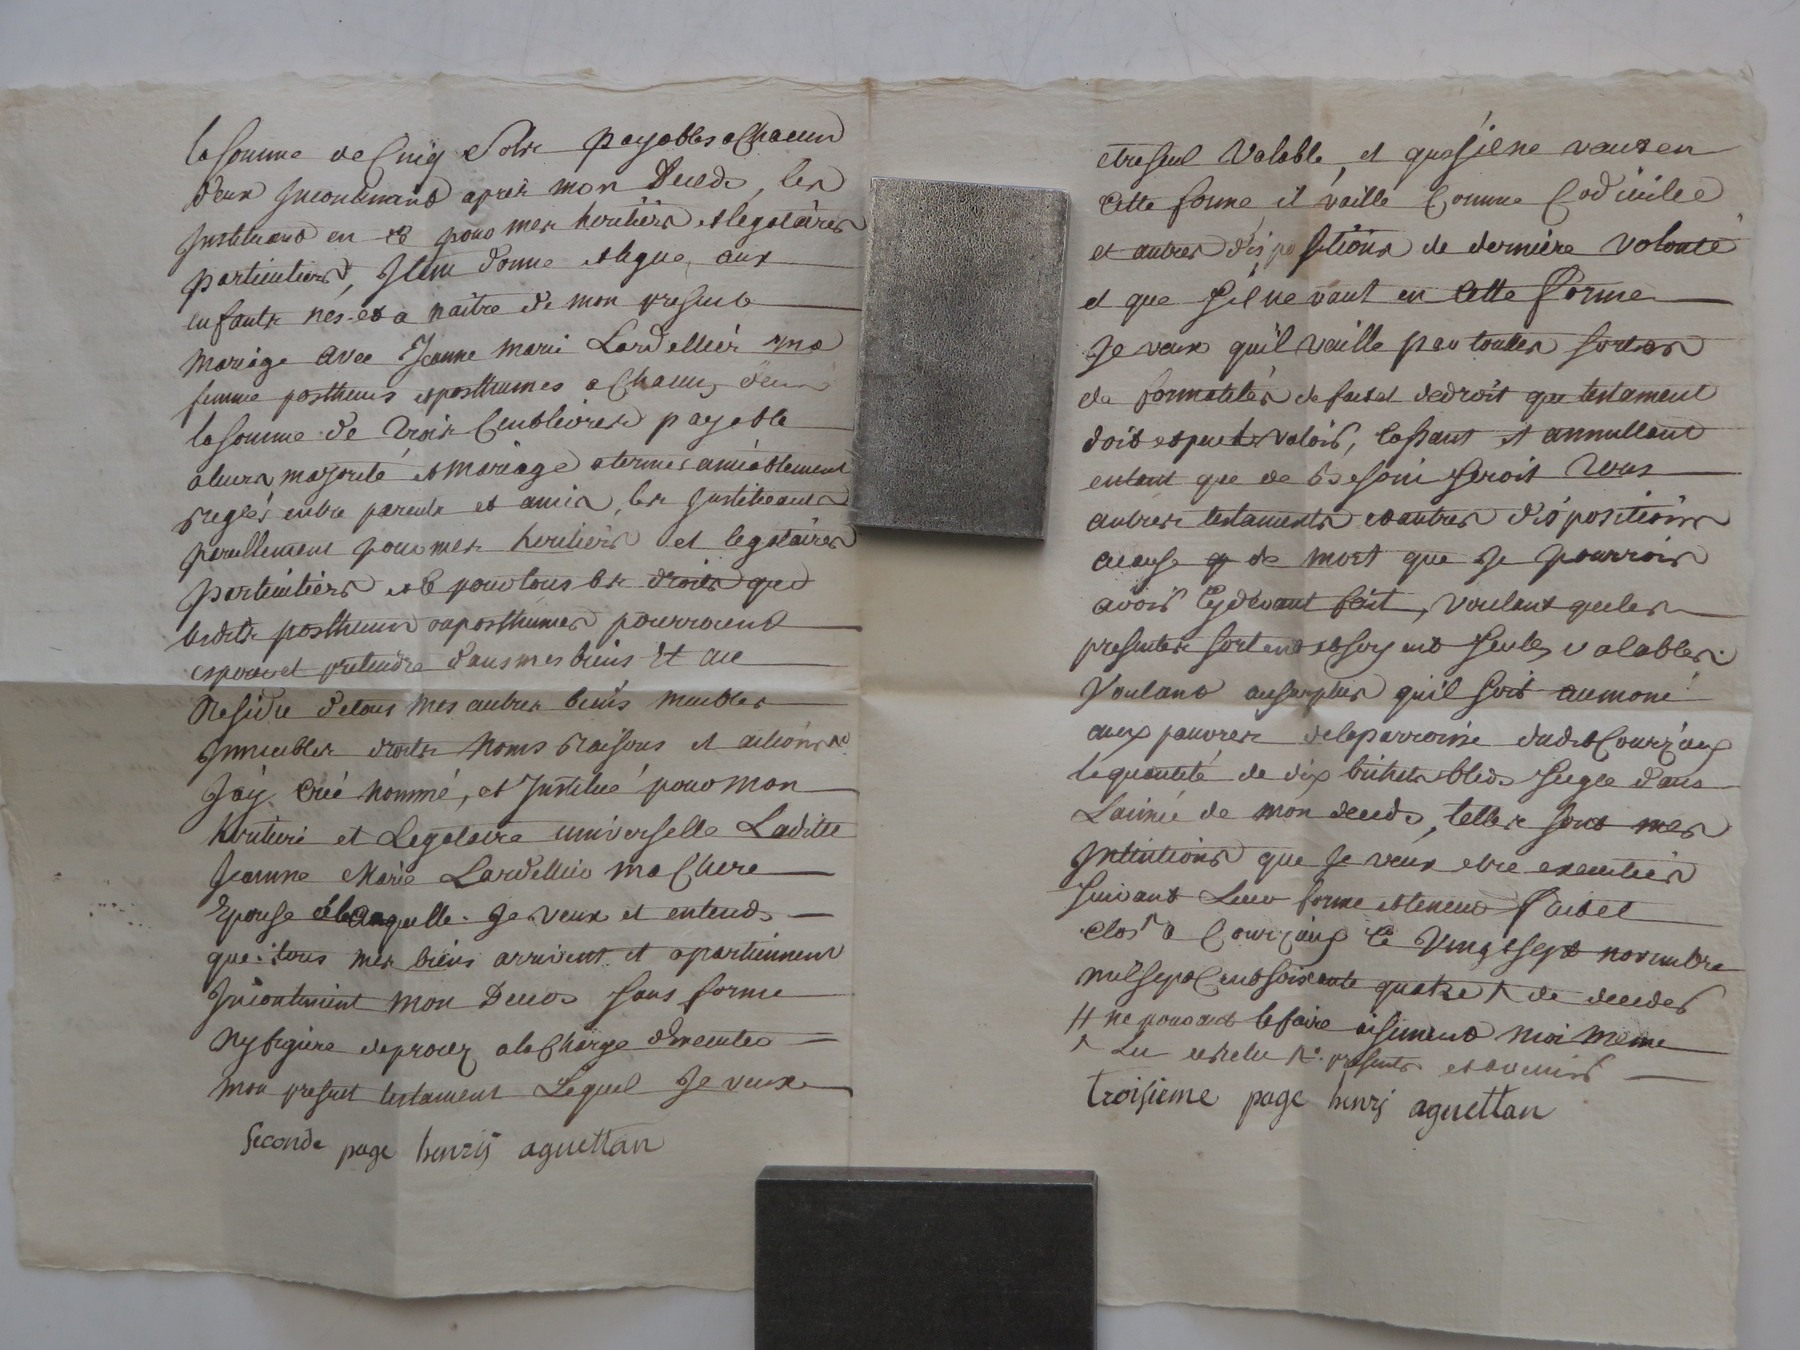 la somme de Cinq Sols payables a Chacun
deux Incontinant apres mon Deceds, les
Instituant en ce pour mes heritiers et legataires
particuliers, Item donne et legue, aux
enfants nés et a naitre de mon present
mariage avec Jeanne marie Lardellier ma
femme postheus et posthumes a Chacun, deux
la somme de Trois Cent livres payable
a leurs majorité et mariage a termes amiablement
reglés entre parents et amis, les Instituants
pareillement pour mes heritiers et legataires
particuliers et ce pour tous les droits que
lesdits postheus ou posthumes pourroient
esperer et pretendre dans mes biens Et au
Residu de tous mes autres biens meubles
Immeubles droits Noms raisons et actions
J'ay créé nommé, et Institué pour mon
heritiere et Legataire universelle Laditte
Jeanne Marie Lardellier ma Chere
Epouse a laquelle Je veux et entends
que tous mes biens arrivent et apartiennent
Incontinent mon Deceds sans forme
Ny figure de procez a la Charge d'executer
mon present testament Lequel Je veux
Seconde page henrij aguettan
etre seul Valable, et que s'il ne vaut en
cette forme il vaille Comme Codicille
et autres dispositions de derniere Volonté
et que s'il ne vaut en Cette forme
Je veux qu'il vaille par touttes sortes
de formalités de fait et de droit que testament
doit et peut valoir, Cassant et annullant
entant que de Besoin seroit Tous
autres testaments et autres dispositions
a cause de mort que Je pourrois
avoir Cy devant fait, voulant que les
presentes sortent et soyent seules valables.
Voulant au surplus qu'il soit aumoné
aux pauvres de la parroisse dudit Courzieux
la quantité de dix bichets bled Segle dans
L'année de mon deceds, telles sont mes
Intentions que Je veux etre executées
suivant Leur forme et teneur fait et
clos a Courzieux Le Vingt sept novembre
mil sept Cent soixante quatre ^ de deceder
# ne pouvant le faire aisement moi meme
^ Lu et relu presents et avenir
troisieme page henrij aguettan